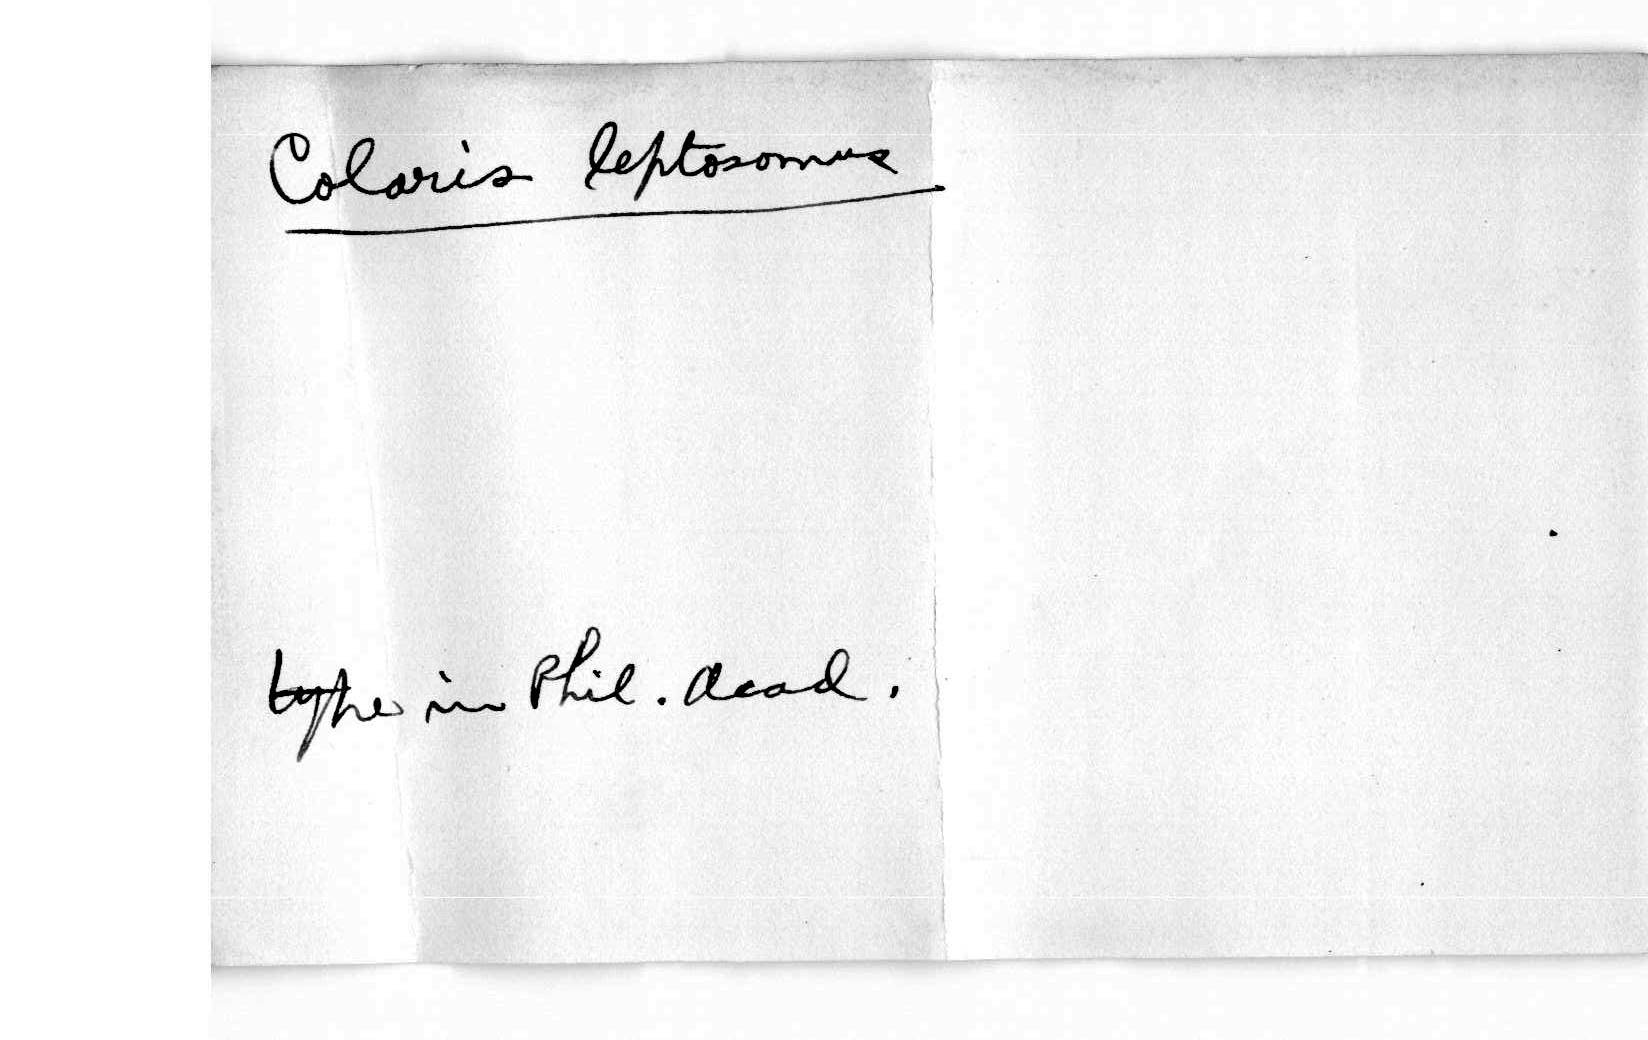 Colaris leptosomus
type in Phil. Acad.